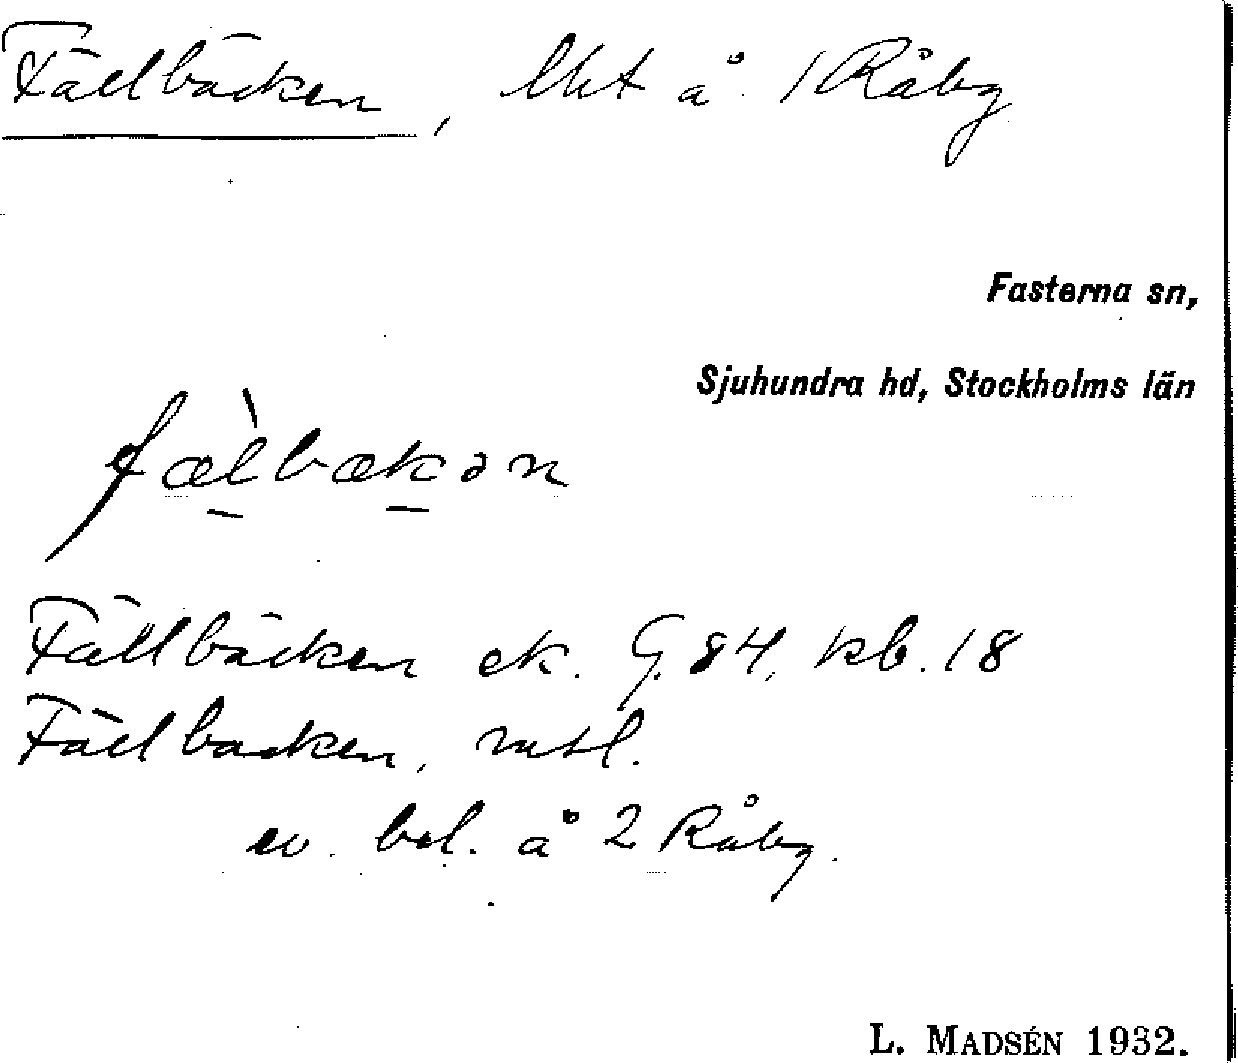 Fällbäcken, lht å 1 Råby
Fasterna sn,
Sjuhundra hd, Stockholms län
fæ̀lbækən
Fällbäcken ek. G. 84, kb. 18
Fällbacken, mtl.
ev. bel. å 2 Råby.
L. MADSÉN 1932.